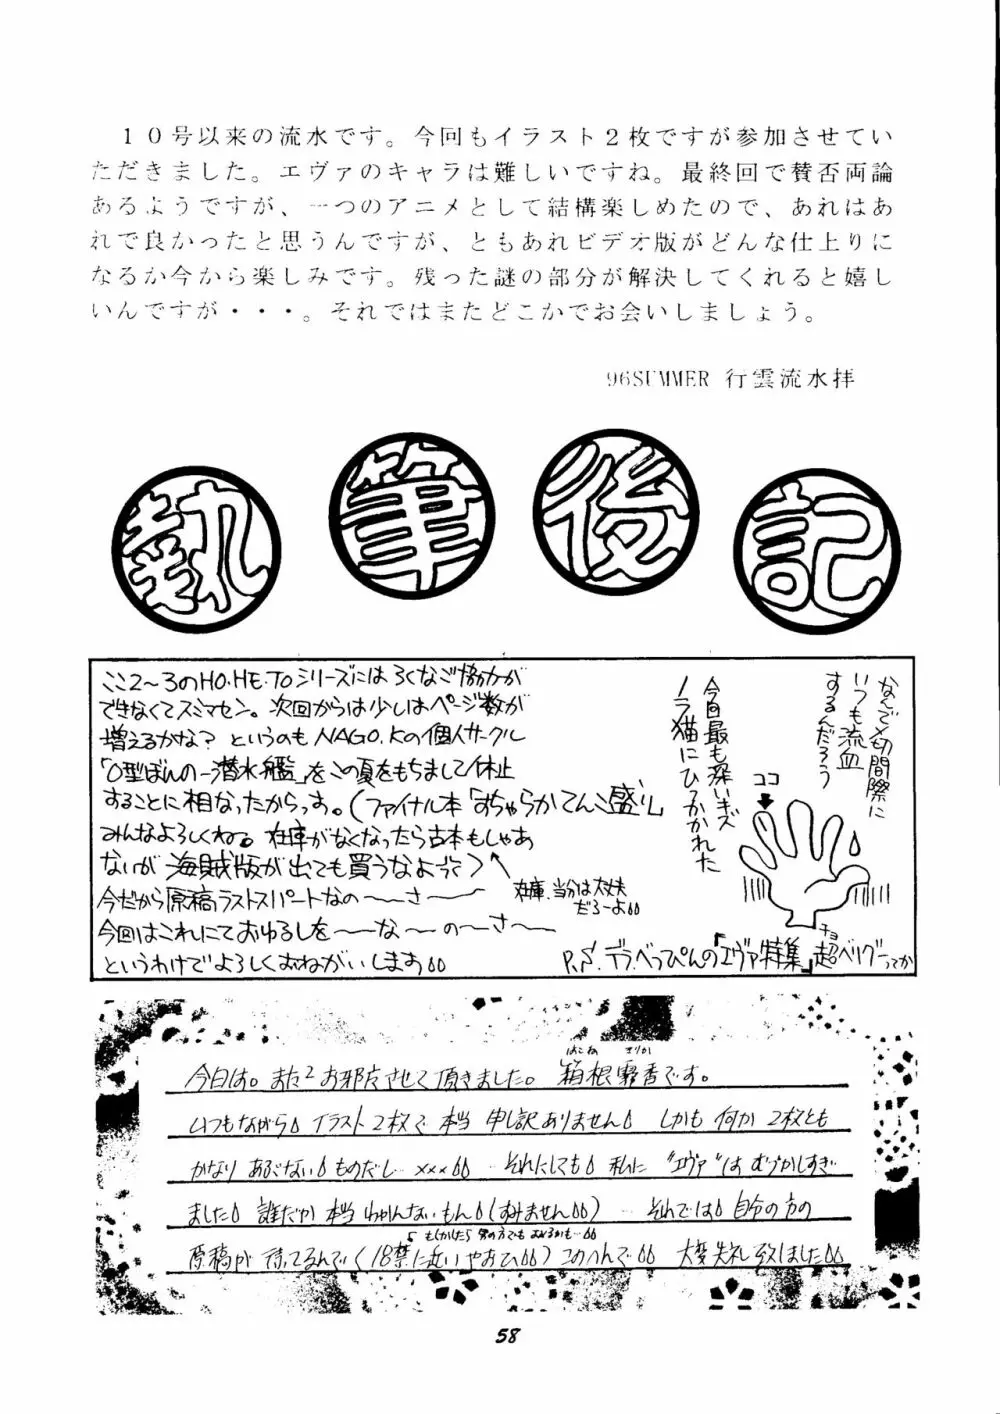 １０号以来の流水です。今回もイラスト２枚ですが参加させてい
ただきました。エヴァのキャラは難しいですね。最終回で賛否両論
あるようですが、一つのアニメとして結構楽しめたので、あれはあ
れで良かったと思うんですが、ともあれビデオ版がどんな仕上りに
なるか今から楽しみです。残った謎の部分が解決してくれると嬉し
いんですが・・・。それではまたどこかでお会いしましょう。
96SUMMER 行雲流水拝
執筆後記
ここ2〜3のHO・HE・TOシリーズにはろくなご協力が
できなくてスミマセン。次回からは少しはページ数が
増えるかな？というのもNAGO.Kの個人サークル
「O型ぼんの一潜水艦」をこの夏をもちまして休止
することに相なったからっす。(ファイナル本「おちゃらかてんこ盛り」
みんなよろしくね。在庫がなくなったら古本もしゃあ
ないが海賊版が出ても買うなよ)
在庫、当分は大丈夫
だろーよ
今だから原稿ラストスパートなの〜〜さ〜〜
今回はこれにておゆるしを〜〜な〜の〜さ〜
というわけでよろしくおねがいします
なんで〆切間際に
いつも流血
するんだろう
ココ
今回最も深いキズ
ノラ猫にひっかかれた
P.S.デラべっぴんの「エヴァ特集」超ベリグーってか
チョ
はこね きりか
今日は。また2お邪魔させて頂きました。箱根霧香です。
いつもながら イラスト2枚で本当 申し訳ありません しかも 何か 2枚とも
かなり あぶない ものだし… ×××… それにしても 私に "エヴァ"は むづかしすぎ
ました 誰だか 本当 わかんないもん(すみません)… それでは 自分の方の
もしかしたら 男の方でも おこるかも…
原稿が 待ってるんで(18禁に近いやおひ)このへんで 大変失礼致しました
58